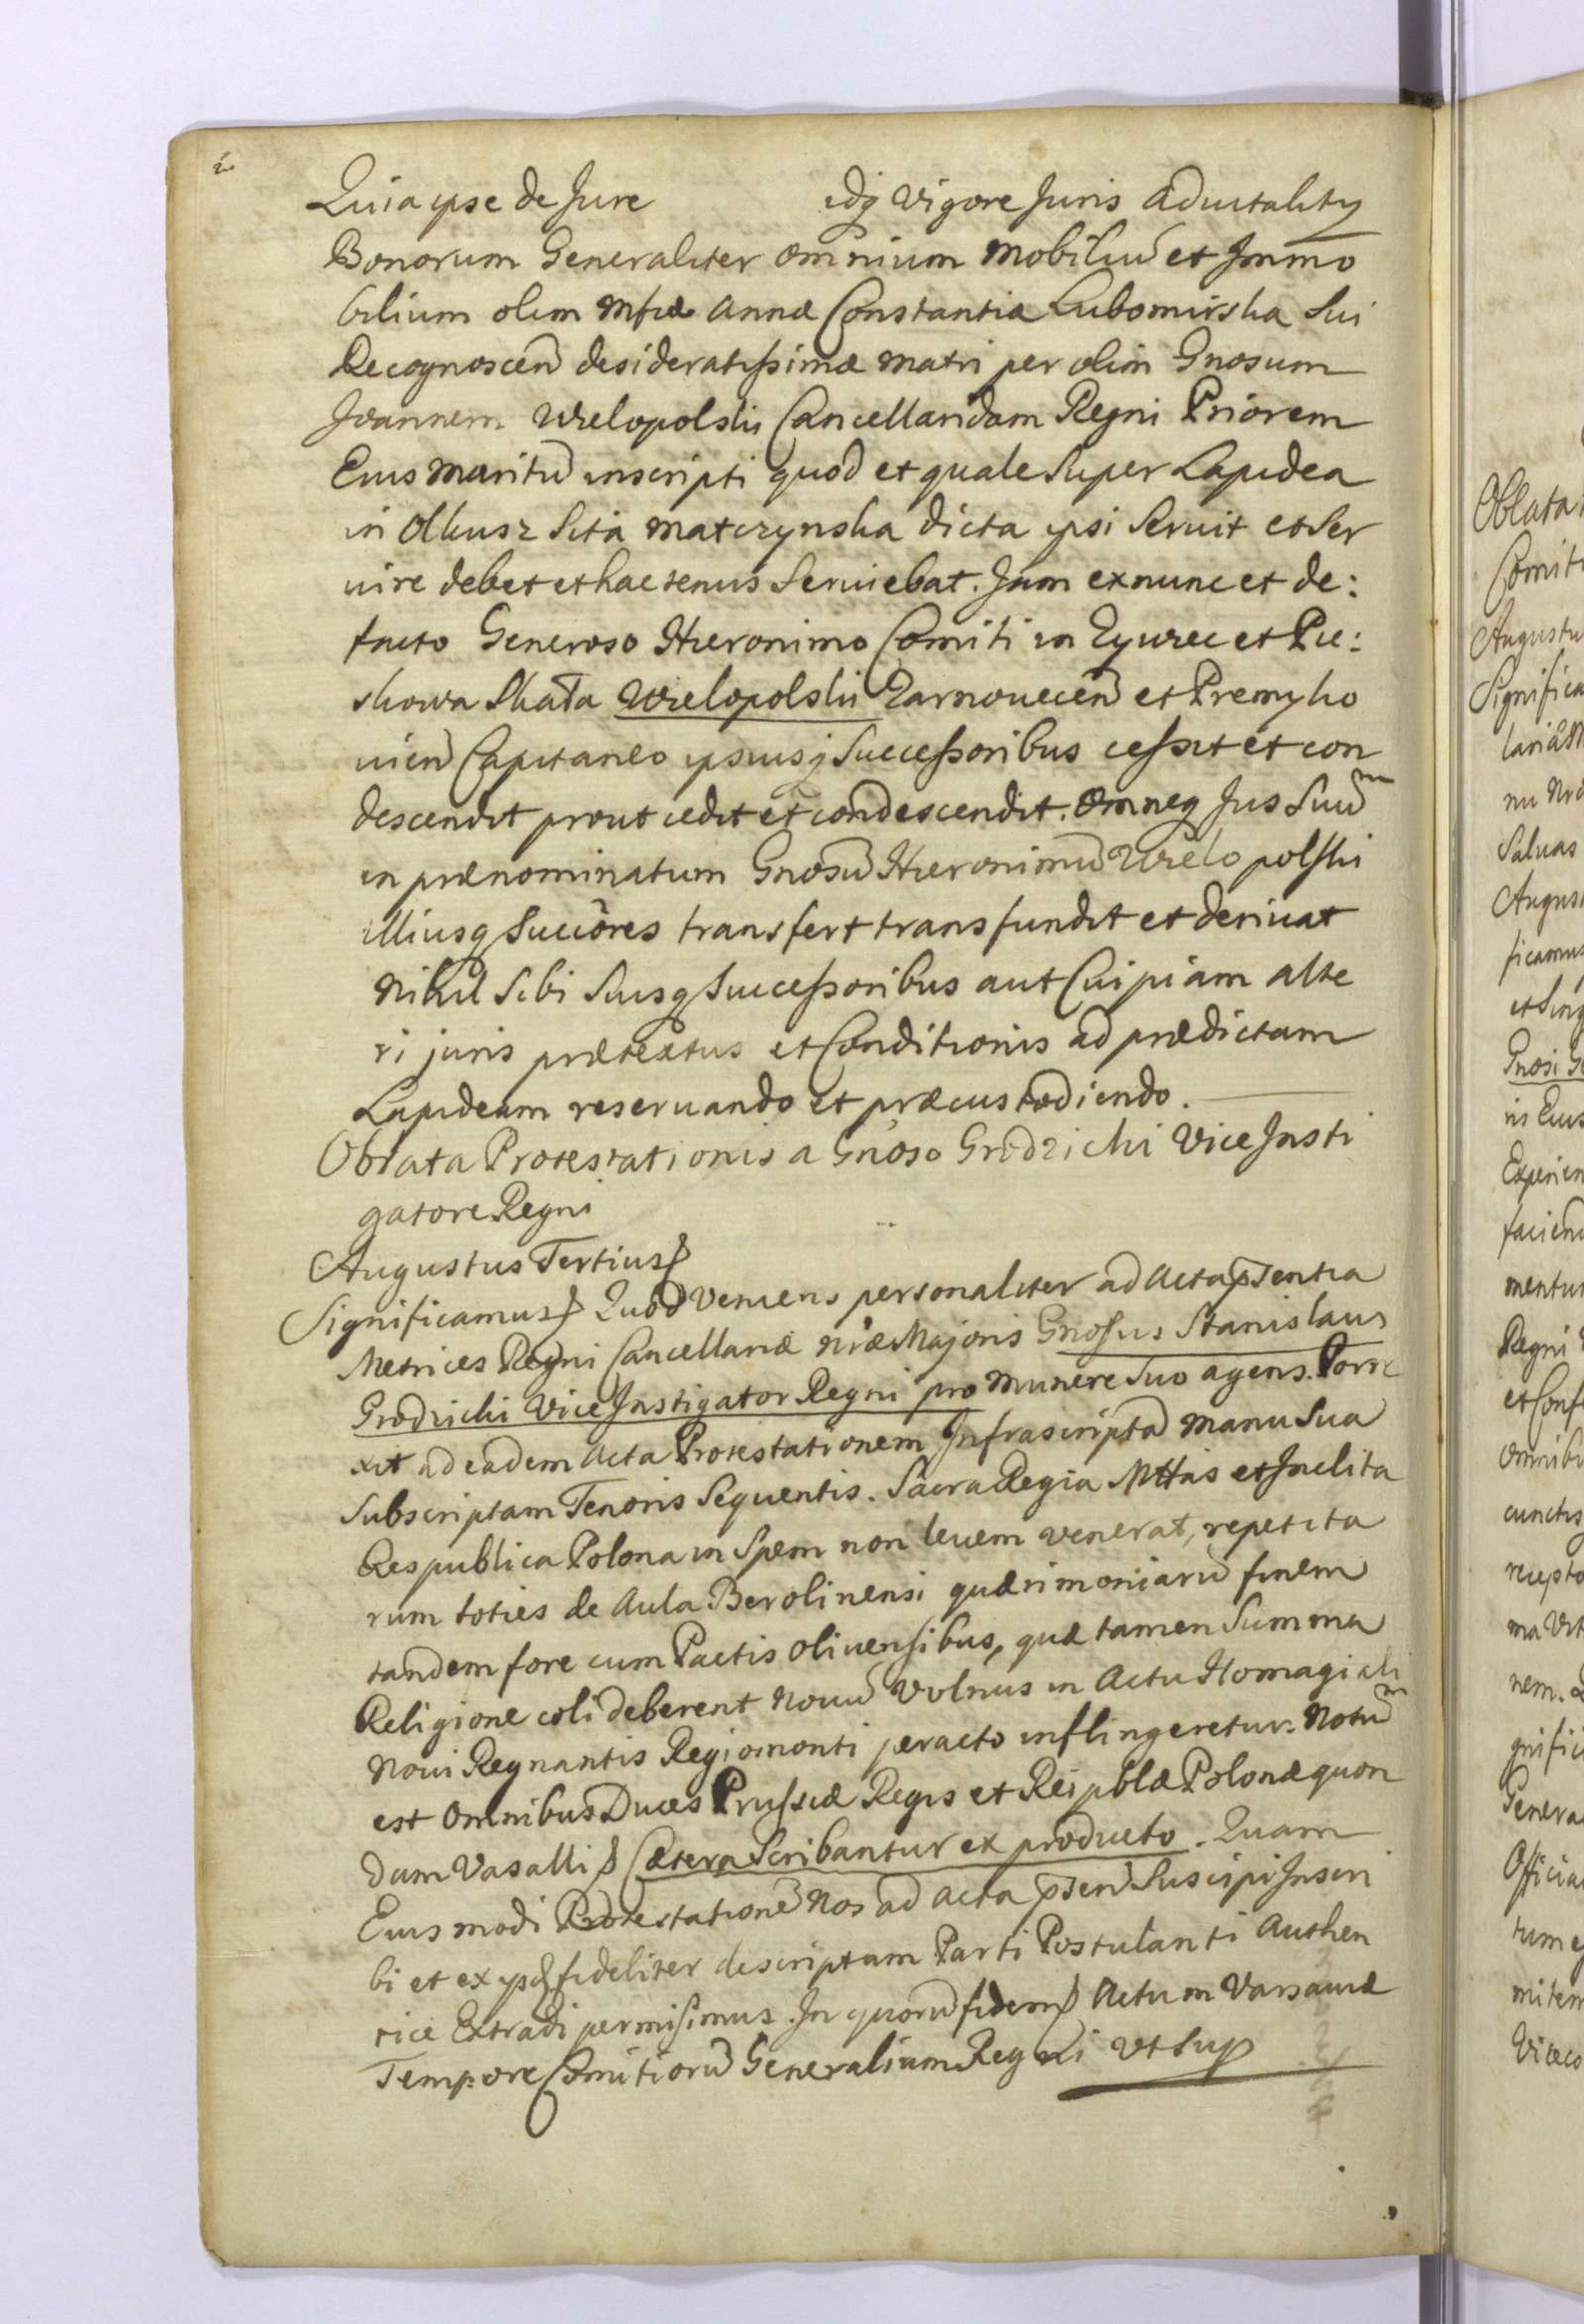 Quia ipse de Jure idq Vigore Juris advitality
Bonorum Generaliter omnium mobiliu et Immo
bilium olim Mfcæ Annæ Constantia Lubomirska Sui
Recognoscen desideratissimæ matri per olim Gnosum
Joannem Wielopolski Cancellaridam Regni Priorem
Eius maritu inscripti quod et quale Super Lapidea
in Olkusz Sita Matczynska dicta ipsi Seruit et Ser
uire debet et hactenus Seruiebat. Jam ex nunc et de:
facto Generoso Hieronimo Comiti in Zywiec et Pie:
skowa Skała Wielopolski Zarnouecen et Premyko
uien Capitaneo ipsiusq Successoribus cessit et con
descendit prout cedit et condescendit. Omneq Jus Suum
in prænominatum Gnosu Hieronimu Wielopolski
illiusq Succores transfert transfundit et deriuat
Nihil Sibi Suisq Successoribus aut Cuipiam alte
ri juris prætextus et Conditionis ad prædictam
Lapideam reseruando et præcustodiendo.
Oblata Protestationis a Gnoso Grodzicki Vice Insti
gatore Regni
Augustus Tertius
Significamus Quod Veniens personaliter ad Acta psentia
Metrices Regni Cancellariæ nræ Majoris Gnosus Stanislaus
Grodzicki Vice Instigator Regni pro munere Suo agens. Porre
xit ad eadem Acta Protestationem Infrascripta manu Sua
Subscriptam Tenoris Sequentis. Sacra Regia Mttas et Inclita
Respublica Polona in Spem non leuem venerat, repetita
rum toties de Aula Berolinensi quærimoniaru finem
tandem fore cum Pactis Oliuensibus, quæ tamen Summa
Religione coli deberent nouu Volnus in Actu Homagiali
Noui Regnantis Regiomonti peracto inflingeretur: Notum
est Omnibus Duces Prussiæ Regis et Reipblæ Polonæ quon
dam Vasalli Cætera Scribantur ex producto. Quam
Eius modi Protestatione Nos ad Acta psen Suscipi Inscri
bi et ex ips fideliter descriptam Parti Postulanti Authen
tice Extradi permisimus. In quoru fidem Actum Varsauiæ
Tempore Comitioru Generalium Regni Vt Sup